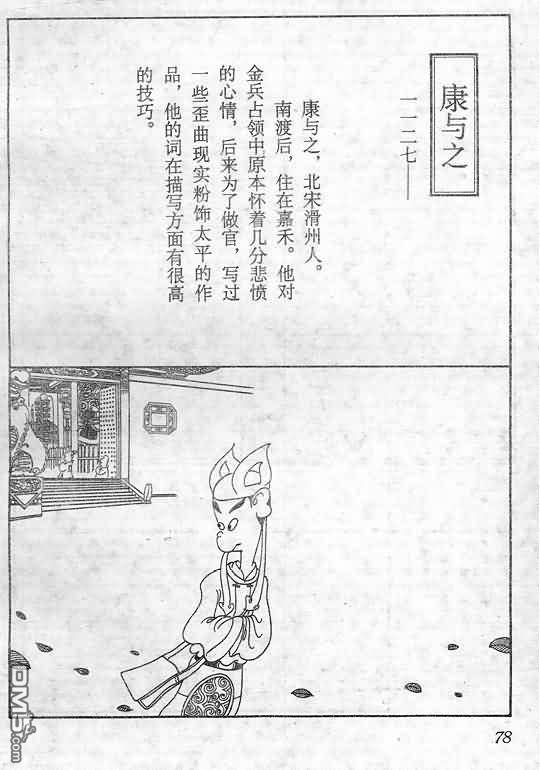 康与之
一一二七——
康与之，北宋滑州人。
南渡后，住在嘉禾。他对
金兵占领中原本怀着几分悲愤
的心情，后来为了做官，写过
一些歪曲现实粉饰太平的作
品，他的词在描写方面有很高
的技巧。
78
DM5.com